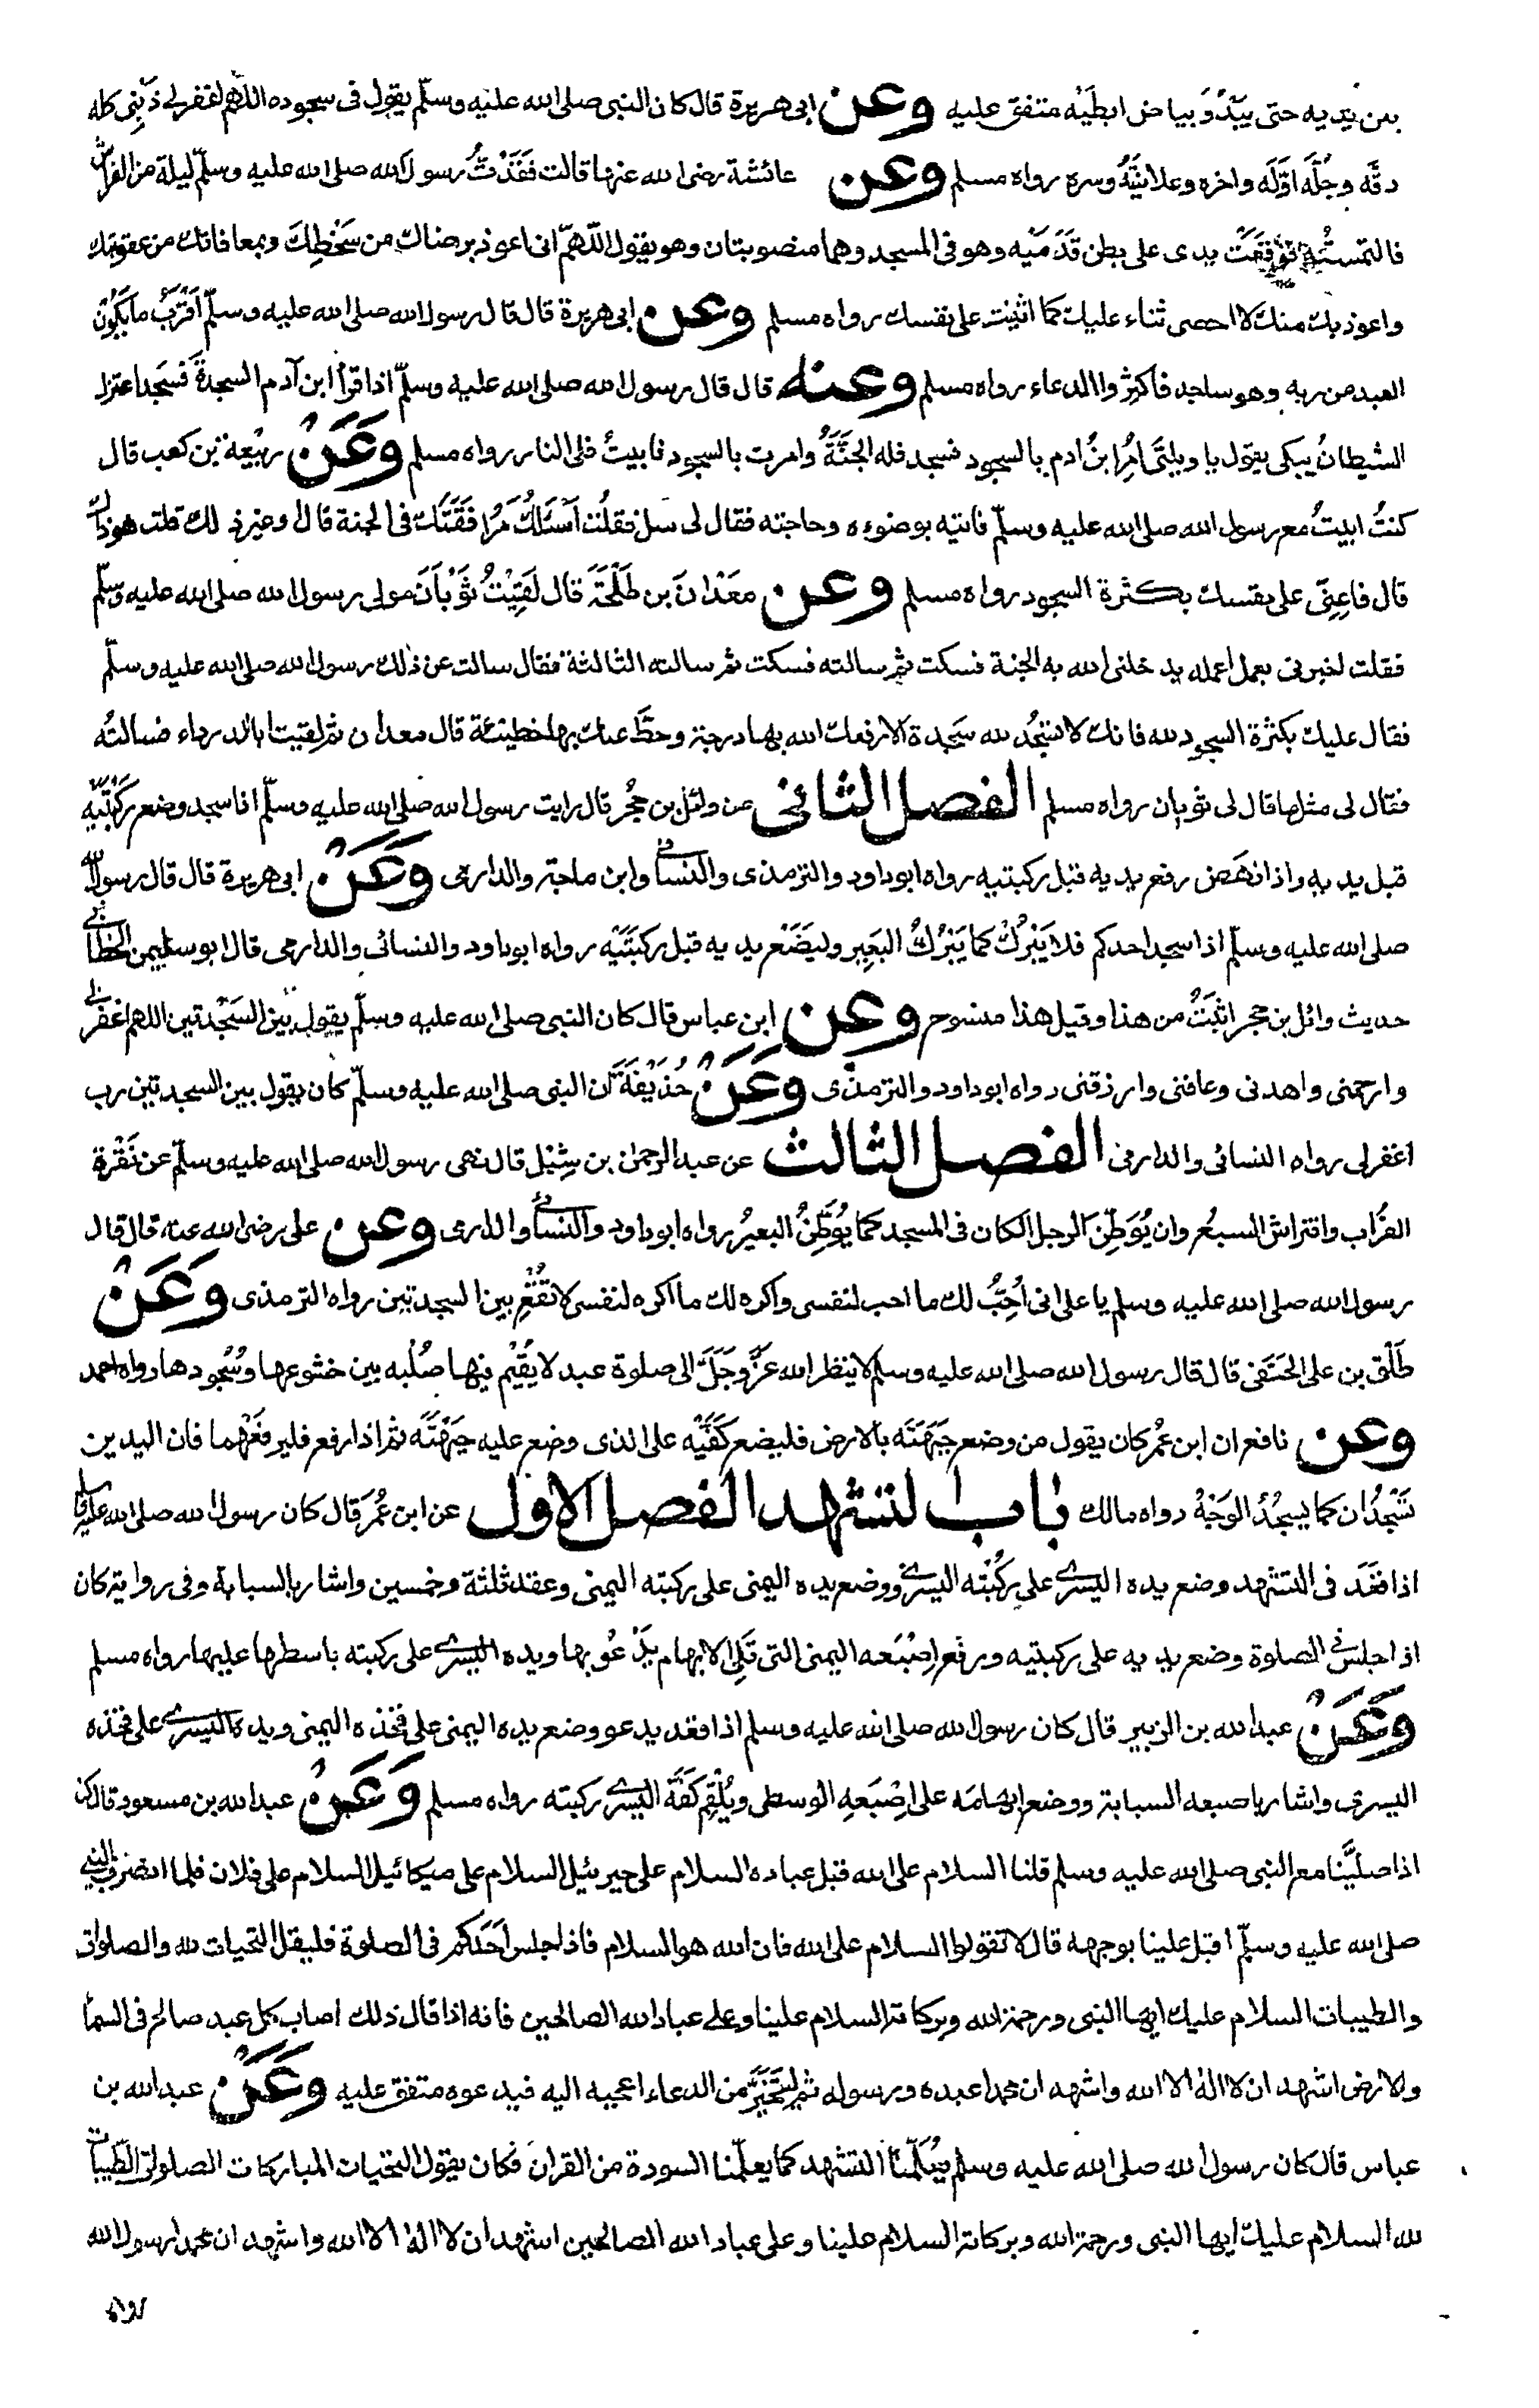 بين يديه حتى يَبْدُوَ بياض ابطَيْه متفق عليه وعن ابى هريرة قال كان النبى صلى الله عليه وسلّم يقول فى سجوده اللهم اغفر لى ذَنْبِى كله
دقَّه وجُلَّه اوّلَه واخره وعلانيَتَه وسره رواه مسلم وعن عائشة رضى الله عنها قالت فَقَدْتُ رسول الله صلى الله عليه وسلّم ليلة من الفراش
فالتمستُه فوقَعَتْ يدى على بطن قَدَمَيْه وهو فى المسجد وهما منصوبتان وهو يقول اللّهمّ انى اعوذ برضاك من سَخَطِكَ وبمعافاتك من عقوبتك
واعوذ بك منك لا احصى ثناء عليك كما اثنيت على نفسك رواه مسلم وعن ابى هريرة قال قال رسول الله صلى الله عليه وسلّم اَقْرَبُ ما يَكُوْنُ
العبد من ربه وهو ساجد فاكثِرُوا الدعاء رواه مسلم وعنه قال قال رسول الله صلى الله عليه وسلّم اذا قرأ ابن آدم السجدةَ فسَجَد اعتزل
الشيطانُ يبكى يقول يا ويلتى اُمِرَ ابنُ ادم بالسجود فسجد فله الجَنَّةُ وامرت بالسجود فابيتُ فلى النار رواه مسلم وَعَنْ ربيعة بن كعب قال
كنتُ ابيتُ مع رسول الله صلى الله عليه وسلّم فاتيته بوضوءه وحاجته فقال لى سل فقلتُ اَسْئَلُكَ مُرَافَقَتَكَ فى الجنة قال اوغير ذلك قلت هو ذاك
قال فاَعِنِّى على نفسك بكثرة السجود رواه مسلم وعن مَعْدَانَ بن طَلْحَةَ قال لَقِيْتُ ثَوْبَانَ مولى رسول الله صلى الله عليه وسلّم
فقلت اخبرنى بعمل اعمله يدخلنى الله به الجنة فسكت ثم سالته فسكت ثم سالته الثالثة فقال سالت عن ذلك رسول الله صلى الله عليه وسلّم
فقال عليك بكثرة السجود لله فانك لا تسْجُد لله سَجْدة الا رفعك الله بها درجة وحطَّ عنك بها خطيئة قال معدان ثم لقيت ابا الدرداء فسالتُه
فقال لى مثل ما قال لى ثوبان رواه مسلم الفصل الثانى عن وائل بن حُجْر قال رايت رسول الله صلى الله عليه وسلّم اذا سجد وضع ركبَتَيْه
قبل يديه واذا نهَضَ رفع يديه قبل ركبتيه رواه ابو داود والترمذى والنسائى وابن ماجة والدارمى وَعَنْ ابى هريرة قال قال رسول الله
صلى الله عليه وسلّم اذا سجد احدكم فلا يَبْرُكْ كما يَبْرُكُ البَعِير وليَضَعْ يديه قبل ركبَتَيْه رواه ابو داود والنسائى والدارمى قال ابو سليمن الخطابى
حديث وائل بن حجر اثبَتُ من هذا وقيل هذا منسوخ وعن ابن عباس قال كان النبى صلى الله عليه وسلّم يقول بين السَجْدتين اللهم اغفر لى
وارحمنى واهدنى وعافنى وارزقنى رواه ابو داود والترمذى وَعَنْ حُذَيْفَةَ ان النبى صلى الله عليه وسلّم كان يقول بين السجدتين رب
اغفر لى رواه النسائى والدارمى الفصل الثالث عن عبد الرحمن بن شِبْل قال نهى رسول الله صلى الله عليه وسلّم عن نَقْرَة
الغُرَاب وافتراش السبُع وان يُوَطِّنَ الرجل المكان فى المسجد كما يُوَطِّنُ البعيرُ رواه ابو داود والنسائى والدارمى وعن على رضى الله عنه قال قال
رسول الله صلى الله عليه وسلم يا على انى اُحِبُّ لك ما احب لنفسى واكره لك ما اكره لنفسى لا تُقْعِ بين السجدتين رواه الترمذى وَعَنْ
طَلْق بن على الحَنَفى قال قال رسول الله صلى الله عليه وسلم لا ينظر الله عَزَّ وجَلَّ الى صلوة عبد لا يُقِيْم فيها صُلْبه بين خشوعها وسُجُودها رواه احمد
وعن نافع ان ابن عُمَر كان يقول من وضع جَبْهَتَه بالارض فليضع كَفَّيْه على الذى وضع عليه جَبْهَتَه ثم اذا رفع فليرفَعْهما فان اليدين
تَسْجُدَان كما يسجُدُ الوَجْهُ رواه مالك باب التشهد الفصل الاول عن ابن عُمَر قال كان رسول الله صلى الله عليه وسلم
اذا قَعَدَ فى التشهد وضع يده اليسرى على ركُبْتِه اليسرى ووضع يده اليمنى على ركبته اليمنى وعقد ثلثة وخمسين واشار بالسبابة وفى رواية كان
اذا جلس فى الصلوة وضع يديه على ركبتيه ورفع اِصْبَعَه اليمنى التى تَلِى الابهام يَدْعُو بها ويده اليسرى على ركبته باسطها عليها رواه مسلم
وَعَنْ عبد الله بن الزبير قال كان رسول الله صلى الله عليه وسلم اذا قعد يدعو وضع يده اليمنى على فخذه اليمنى ويده اليسرى على فخذه
اليسرى واشار باصبعه السبابة ووضع اِبهامَه على اِصْبَعِهِ الوسطى ويُلْقِم كَفَّه اليسرى ركبته رواه مسلم وَعَنْ عبد الله بن مسعود قال كنا
اذا صليْنا مع النبى صلى الله عليه وسلم قلنا السلام على الله قبل عباده السلام على جبرئيل السلام على ميكائيل السلام على فلان فلما انصرف النبى
صلى الله عليه وسلّم اقبل علينا بوجهه قال لا تقولوا السلام على الله فان الله هو السلام فاذا جلس اَحَدُكم فى الصلوة فليقل التحيات لله والصلوات
والطيبات السلام عليك ايها النبى ورحمة الله وبركاته السلام علينا وعلى عباد الله الصالحين فانه اذا قال ذلك اصاب كل عبد صالح فى السماء
والارض اشهد ان لا اله الا الله واشهد ان محمدا عبده ورسوله ثم ليَتَخَيَّرْ من الدعاء اعجبه اليه فيدعوه متفق عليه وَعَنْ عبد الله بن
عباس قال كان رسول الله صلى الله عليه وسلم يُعَلِّمُنا التشهد كما يعلّمنا السورة من القران فكان يقول التحيات المباركات الصلوات الطّيبات
لله السلام عليك ايها النبى ورحمة الله وبركاته السلام علينا وعلى عباد الله الصالحين اشهد ان لا اله الا الله واشهد ان محمدا رسول الله
رواه